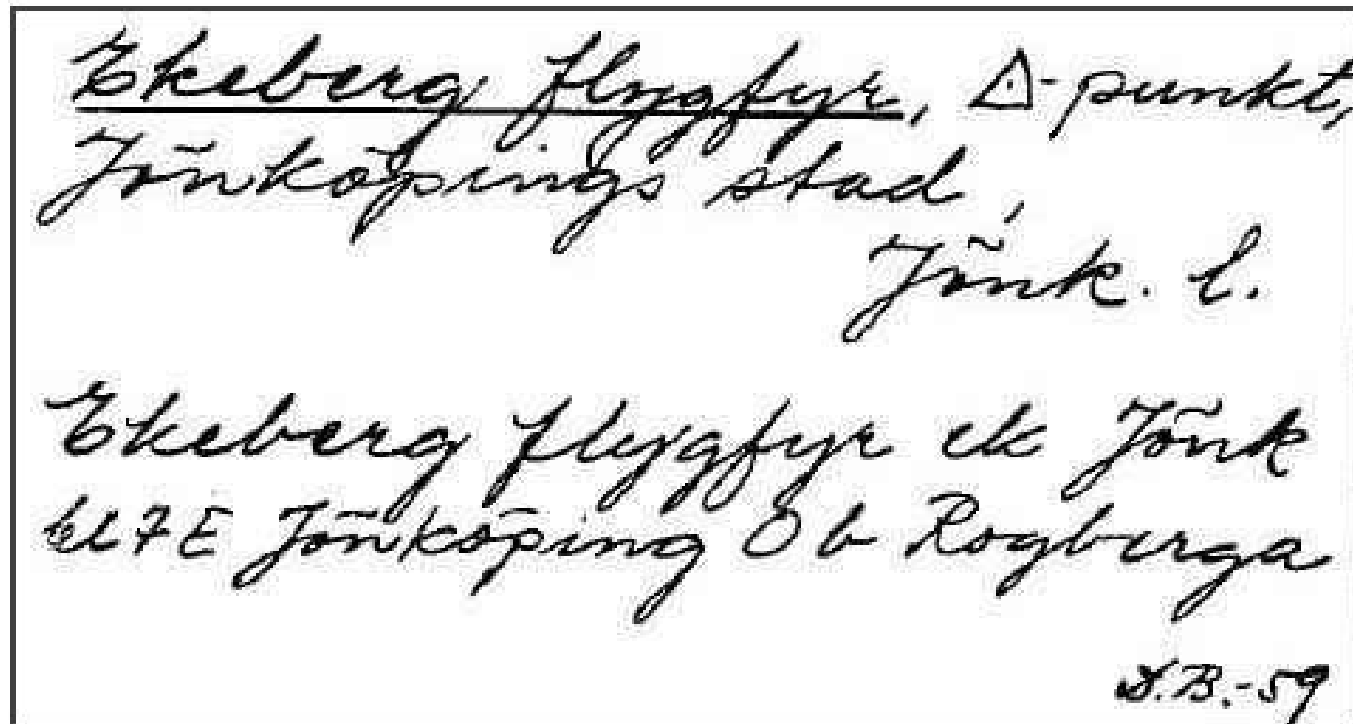 Ekeberg flygfyr, △-punkt,
Jönköpings stad,
Jönk. l.
Ekeberg flygfyr ek Jönk
bl 7E Jönköping 0 b Rogberga
D.B.-59